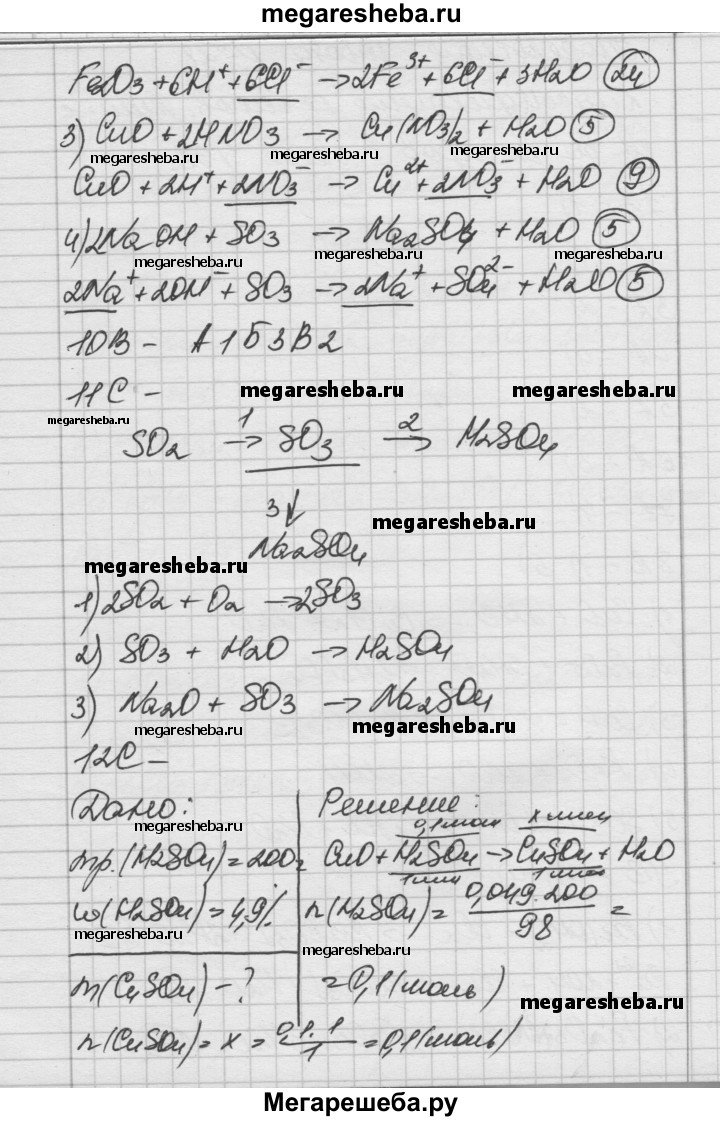 megaresheba.ru
Fe2O3 + 6H⁺ + 6Cl⁻ → 2Fe³⁺ + 6Cl⁻ + 3H2O (24)
3) CuO + 2HNO3 → Cu(NO3)2 + H2O (5)
megaresheba.ru megaresheba.ru megaresheba.ru
CuO + 2H⁺ + 2NO3⁻ → Cu²⁺ + 2NO3⁻ + H2O (9)
4) 2NaOH + SO3 → Na2SO4 + H2O (5)
megaresheba.ru megaresheba.ru
2Na⁺ + 2OH⁻ + SO3 → 2Na⁺ + SO4²⁻ + H2O (5)
10В – А1Б3В2
11С –
megaresheba.ru megaresheba.ru
megaresheba.ru
SO2 →1 SO3 →2 H2SO4
3↓
megaresheba.ru
Na2SO4
megaresheba.ru
1) 2SO2 + O2 → 2SO3
2) SO3 + H2O → H2SO4
3) Na2O + SO3 → Na2SO4
megaresheba.ru megaresheba.ru
12С –
Дано: Решение:
megaresheba.ru 0,1 моль х моль
mр.(H2SO4) = 200г CuO + H2SO4 → CuSO4 + H2O
1 моль 1 моль
w(H2SO4) = 4,9% n(H2SO4) = 0,049·200 / 98 =
megaresheba.ru megaresheba.ru
m(CuSO4) – ? = 0,1 (моль)
megaresheba.ru
n(CuSO4) = x = 0,1·1 / 1 = 0,1 (моль)
Мегарешеба.ру